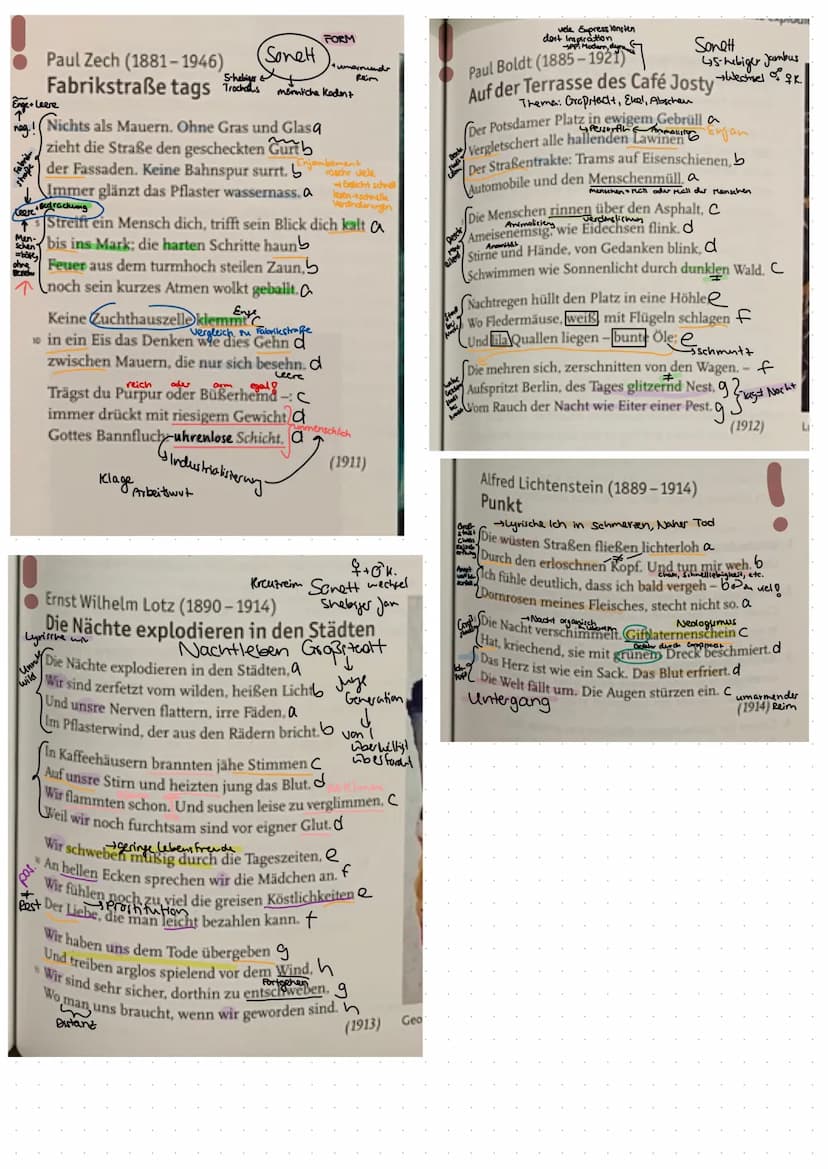 FORM
Sonett
5-hebiger
Trochäus
männliche Kadenz
umarmender
Reim
Paul Zech (1881–1946)
Fabrikstraße tags
Enge + Leere
neg!
Fabrikstraße
Nichts als Mauern. Ohne Gras und Glas a
zieht die Straße den gescheckten Gurt b
der Fassaden. Keine Bahnspur surrt. b
Immer glänzt das Pflaster wassernass. a
Enjambement
5 Streift ein Mensch dich, trifft sein Blick dich kalt a
bis ins Mark; die harten Schritte haun b
Feuer aus dem turmhoch steilen Zaun, b
noch sein kurzes Atmen wolkt geballt. a
Menschen
Enge
Keine Zuchthauszelle klemmt c
Vergleich zu Fabrikstraße
10 in ein Eis das Denken wie dies Gehn d
zwischen Mauern, die nur sich besehn. d
Leere
reich oder arm egal!
Trägst du Purpur oder Büßerhemd –: c
immer drückt mit riesigem Gewicht d
Gottes Bannfluch: uhrenlose Schicht. d
unmenschlich
Industrialisierung
(1911)
Klage
Arbeitswut
viele Expressionisten
dort Inspiration
Sonett
5-hebiger Jambus
Wechsel ♂ ♀ K.
Paul Boldt (1885–1921)
Auf der Terrasse des Café Josty
Thema: Großstadt, Ekel, Abscheu
Der Potsdamer Platz in ewigem Gebrüll a
Vergletschert alle hallenden Lawinen b
Der Straßentrakte: Trams auf Eisenschienen, b
Automobile und den Menschenmüll. a
Menschen = Müll oder Müll der Menschen
Die Menschen rinnen über den Asphalt, c
Ameisenemsig, wie Eidechsen flink. d
Stirne und Hände, von Gedanken blink, d
Schwimmen wie Sonnenlicht durch dunklen Wald. c
Nachtregen hüllt den Platz in eine Höhle, e
Wo Fledermäuse, weiß, mit Flügeln schlagen f
Und lila Quallen liegen – bunte Öle; e
Schmuntz
Die mehren sich, zerschnitten von den Wagen. – f
Aufspritzt Berlin, des Tages glitzernd Nest, g
Vom Rauch der Nacht wie Eiter einer Pest. g
Tag ≠ Nacht
(1912)
Alfred Lichtenstein (1889–1914)
Punkt
→ Lyrische Ich in Schmerzen, Naher Tod
Die wüsten Straßen fließen lichterloh a
Durch den erloschnen Kopf. Und tun mir weh. b
Ich fühle deutlich, dass ich bald vergeh – b
Dornrosen meines Fleisches, stecht nicht so. a
Neologismus
Die Nacht verschimmelt. Giftlaternenschein c
Hat, kriechend, sie mit grünem Dreck beschmiert. d
Das Herz ist wie ein Sack. Das Blut erfriert. d
Die Welt fällt um. Die Augen stürzen ein. c
umarmender
Reim
(1914)
Untergang
♀ + ♂ K.
Kreuzreim Sonett wechsel
5hebiger Jam
Ernst Wilhelm Lotz (1890–1914)
Die Nächte explodieren in den Städten
Lyrische wir
Nachtleben Großstadt
Die Nächte explodieren in den Städten, a
Wir sind zerfetzt vom wilden, heißen Licht, b
Und unsre Nerven flattern, irre Fäden, a
Im Pflasterwind, der aus den Rädern bricht. b
Junge
Generation
von
überwältigt
überfordert
In Kaffeehäusern brannten jähe Stimmen c
Auf unsre Stirn und heizten jung das Blut. d
Wir flammten schon. Und suchen leise zu verglimmen, c
Weil wir noch furchtsam sind vor eigner Glut. d
→ geringe Lebensfreude
Wir schweben müßig durch die Tageszeiten, e
An hellen Ecken sprechen wir die Mädchen an. f
Wir fühlen noch zu viel die greisen Köstlichkeiten e
→ Prostitution
Der Liebe, die man leicht bezahlen kann. f
Wir haben uns dem Tode übergeben g
Und treiben arglos spielend vor dem Wind, h
Fortgehen
Wir sind sehr sicher, dorthin zu entschweben, g
Wo man uns braucht, wenn wir geworden sind. h
Distanz
(1913)
Geo